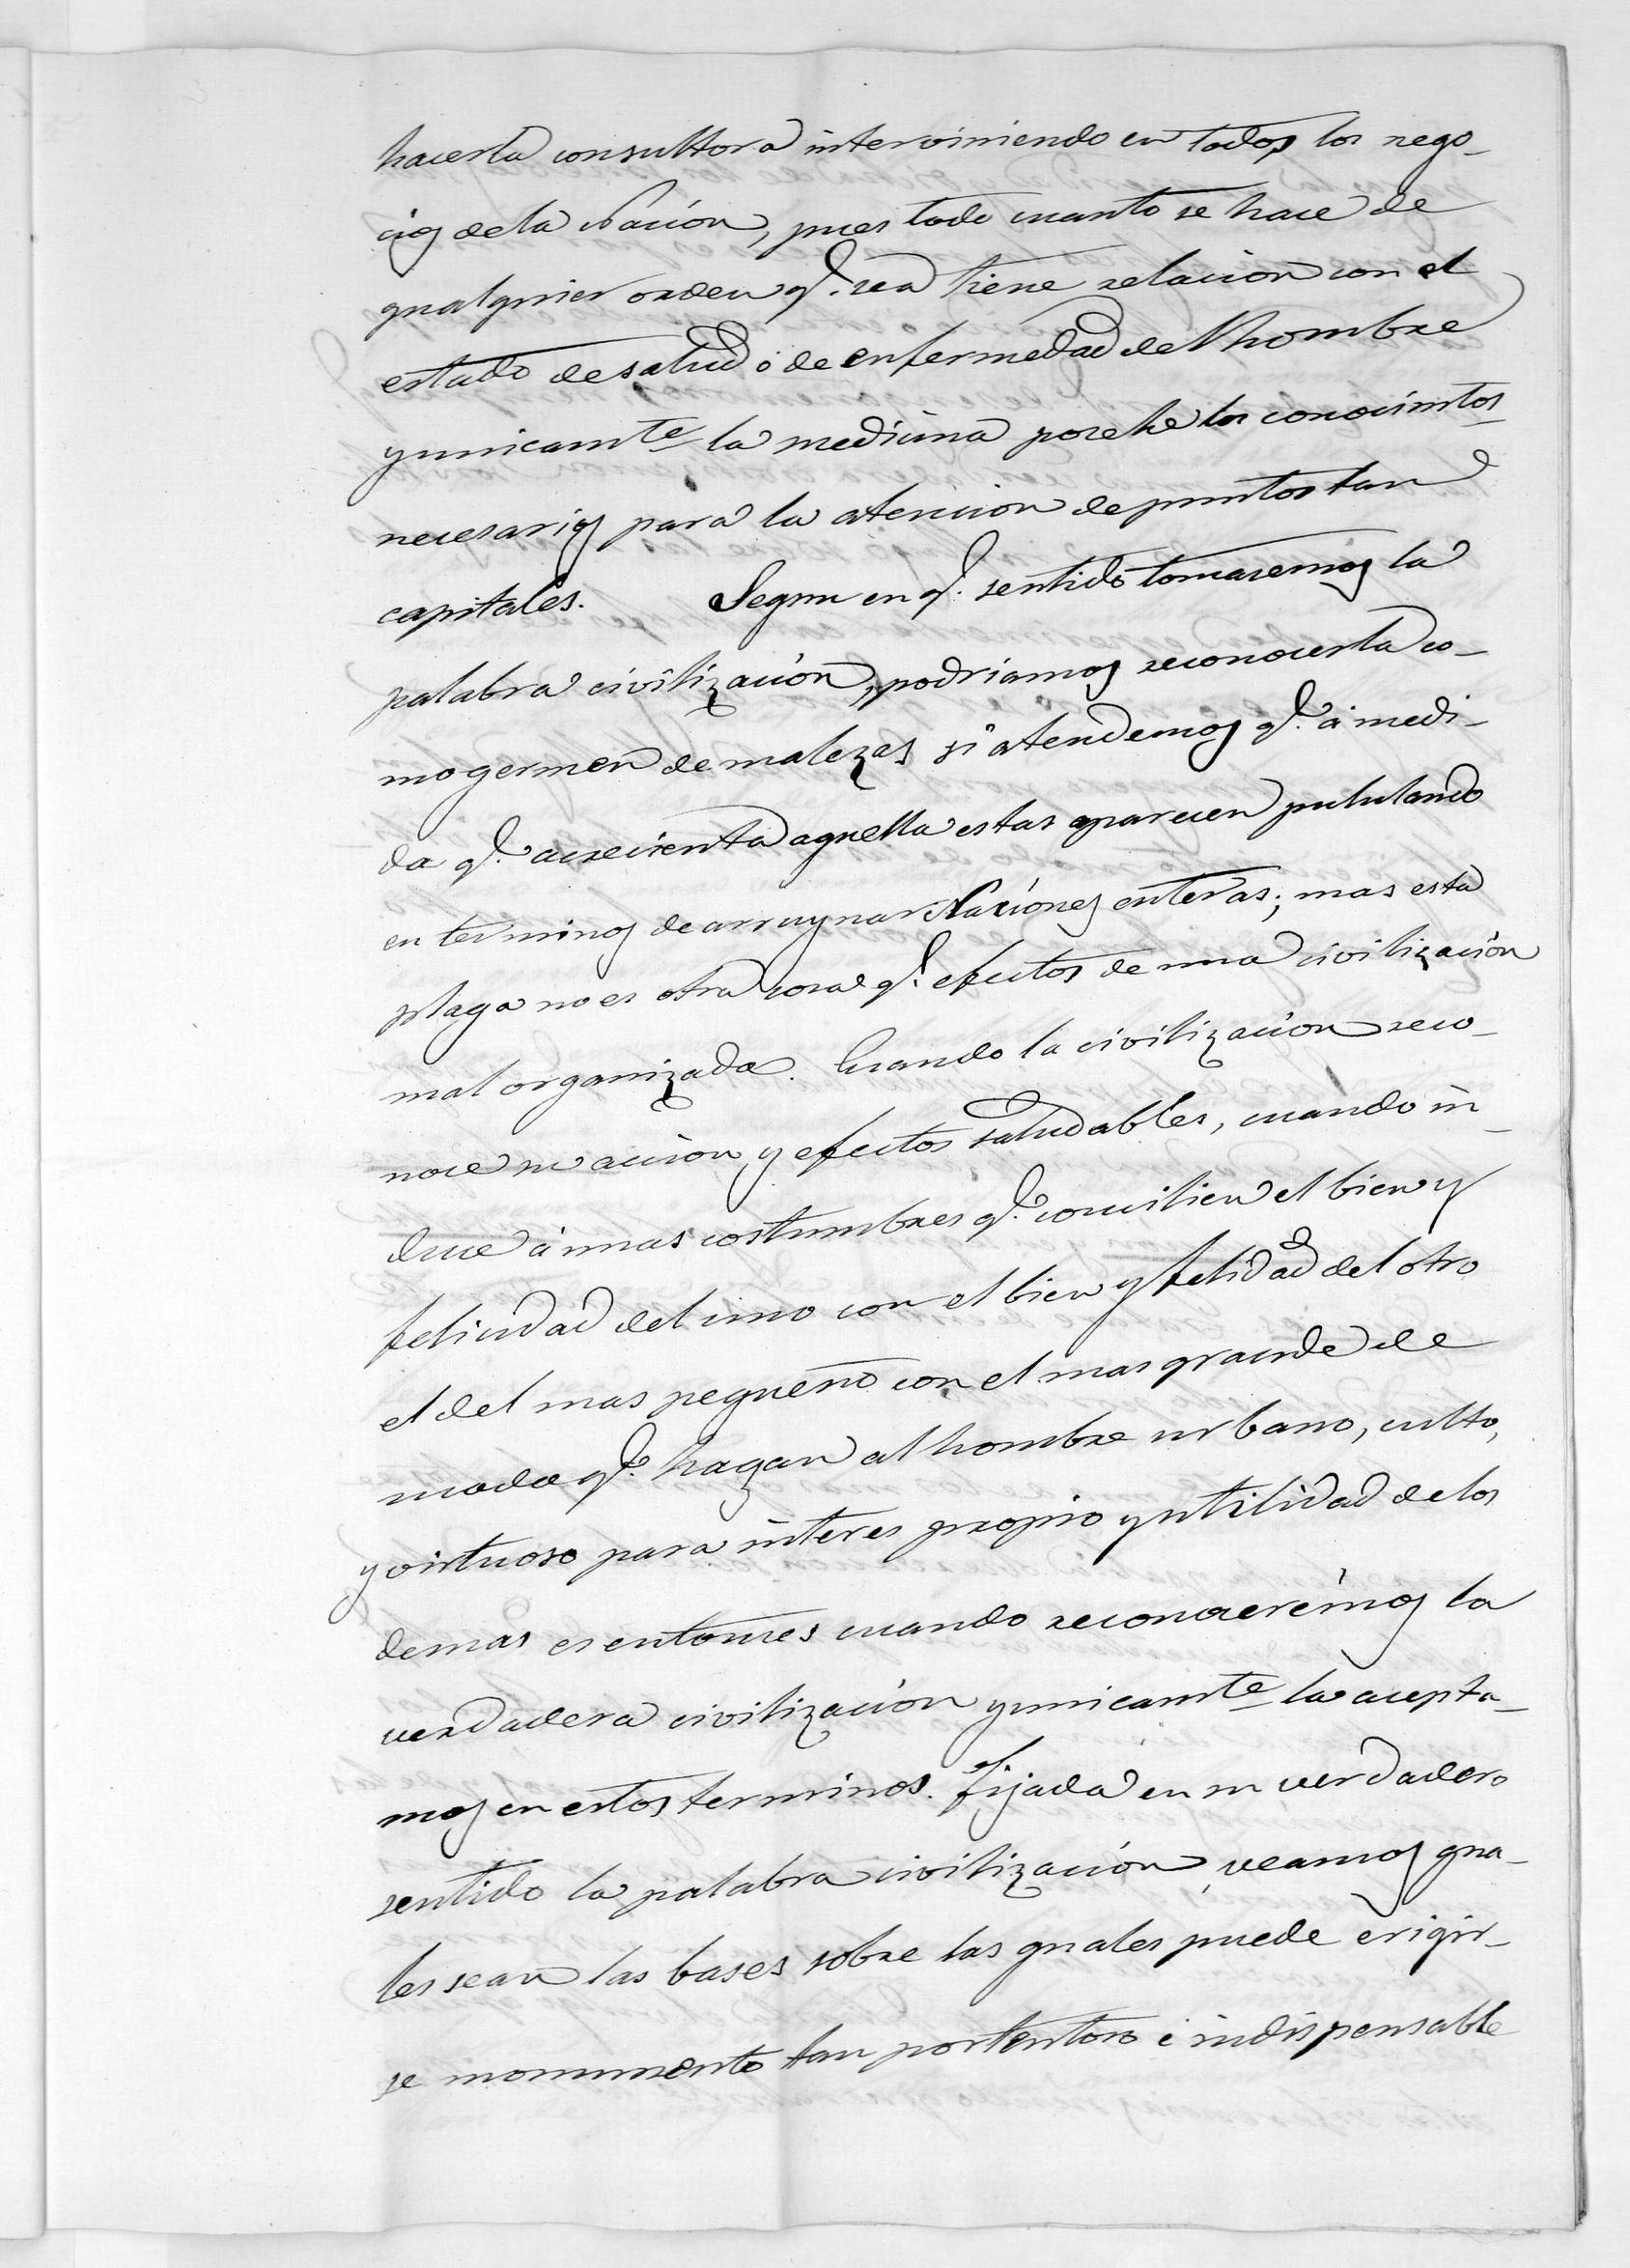 hacerla consultora interviniendo en todos los nego-
cios de la Nación, pues todo cuanto se hace de
qualquier orden q.e sea tiene relacion con el
estado de salud ó de enfermedad del hombre
y unicamte la medicina posehe los conocimtos
necesarios para la atencion de puntos tan
capitales. Segun en q.e sentido tomaremos la
palabra civilización, podriamos reconocerla co-
mo germen de malezas si atendemos q.e á medi-
da q.e acrecienta aquella estas aparecen pululando
en terminos de arruynar Naciónes enteras; mas esta
plaga no es otra cosa q.e efectos de una civilización
mal organizada. Cuando la civilización reco-
noce su acción y efectos saludables, cuando in-
duce á unas costumbres q.e concilien el bien y
felicidad del uno con el bien y felidad del otro
el del mas pequeño con el mas grande de
modo q.e hagan al hombre urbano, culto,
y virtuoso para interes propio y utilidad de los
demas es entonces cuando reconocerémos la
verdadera civilización y unicamte la acepta-
mos en estos terminos. Fijada en su verdadero
sentido la palabra civilización, veamos qua-
les sean las bases sobre las quales puede erigir-
se monumento tan portentoso é indispensable